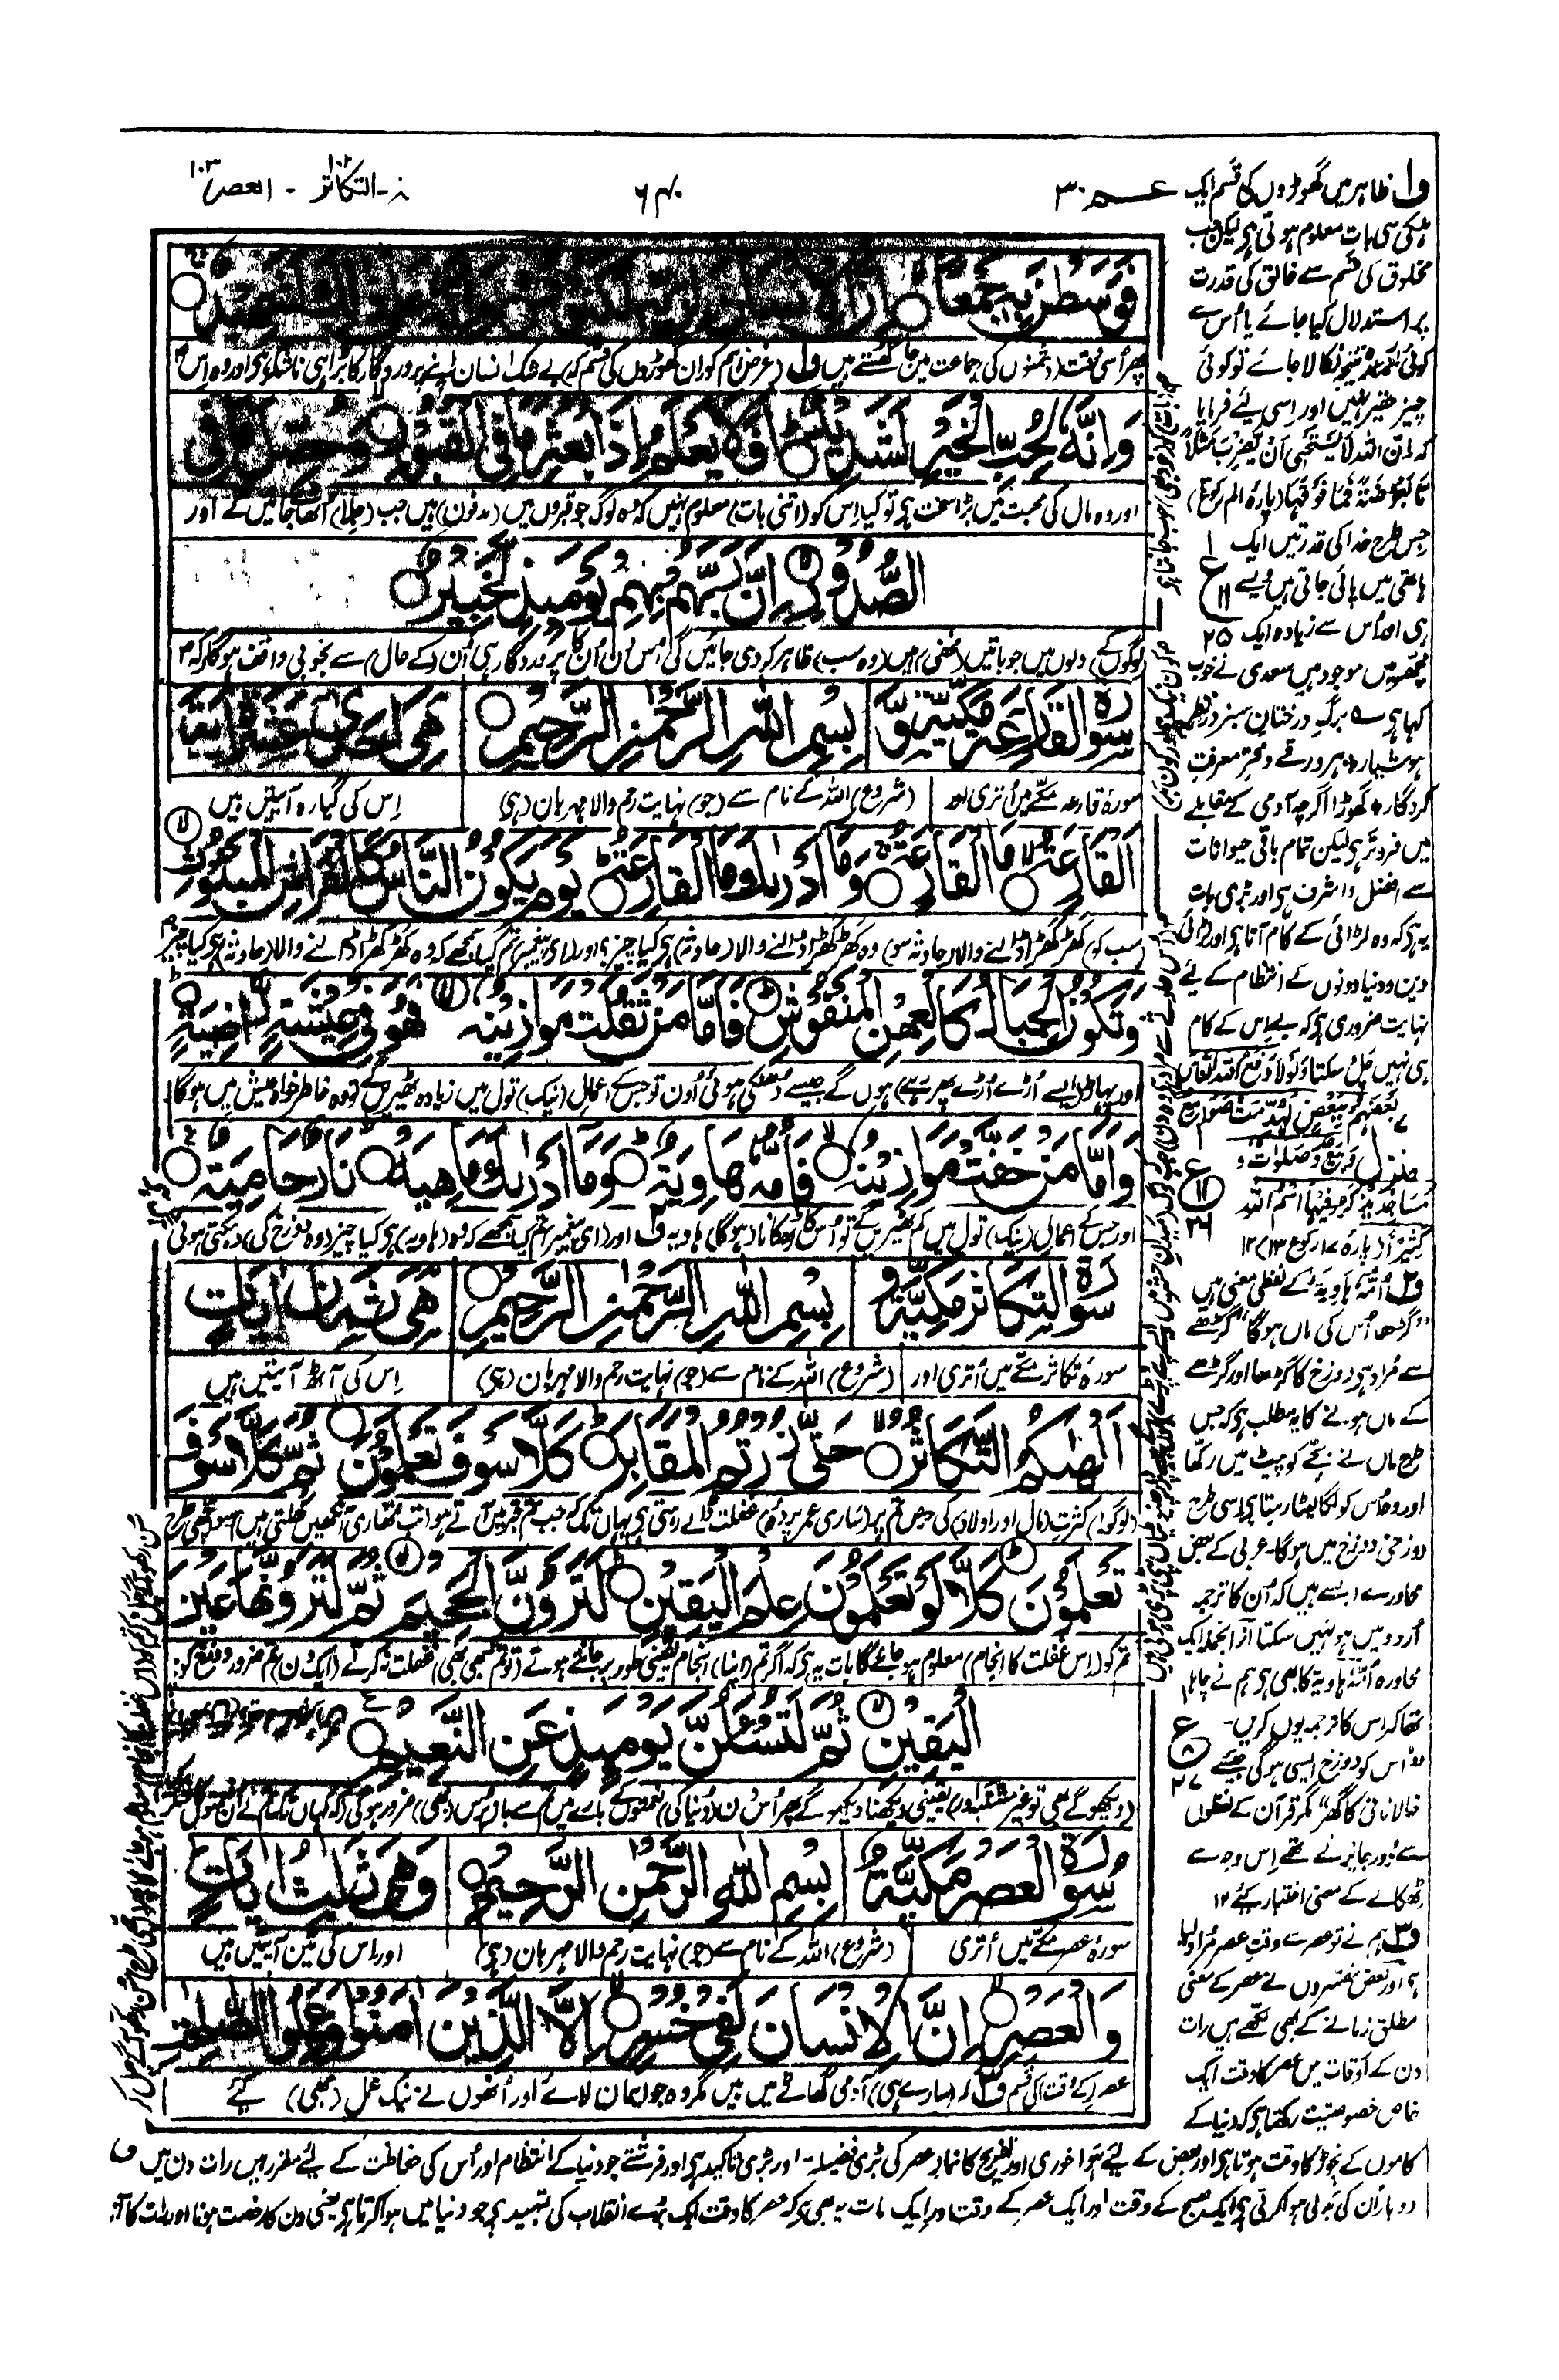 عــم ۳۰
۷۴۶
التکاثر ۱۰۲ - العصر ۱۰۳
فَوَسَطْنَ بِهٖ جَمْعًا اِنَّ الْاِنْسَانَ لِرَبِّهٖ لَكَنُوْدٌ وَاِنَّهٗ عَلٰى ذٰلِكَ لَشَهِيْدٌ
پھر اُسی وقت (دشمنوں کی) جماعت میں جا گھستے ہیں ف۱ (غرض ہم کو ان گھوڑوں کی قسم کہ) بے شک انسان اپنے پروردگار کا بڑا ہی ناشکر ہی اور وہ اِس
وَاِنَّهٗ لِحُبِّ الْخَيْرِ لَشَدِيْدٌ اَفَلَا يَعْلَمُ اِذَا بُعْثِرَ مَا فِى الْقُبُوْرِ وَحُصِّلَ مَا فِى
اور وہ مال کی محبت میں بڑا سخت ہی تو کیا اِس کو (اتنی بات) معلوم نہیں کہ وہ لوگ جو قبروں میں (مدفون) ہیں جب (جِلا) اُٹھائے جائیں گے اور
الصُّدُوْرِ اِنَّ رَبَّهُمْ بِهِمْ يَوْمَئِذٍ لَّخَبِيْرٌ
(لوگوں کے) دلوں میں جو باتیں (مخفی) ہیں (وہ سب) ظاہر کردی جائیں گی اُس دن اُن کا پروردگار ہی اُن (کے حال) سے بخوبی واقف ہوگا
سُوْرَةُ الْقَارِعَةِ مَكِّيَّةٌ وَّ
بِسْمِ اللّٰهِ الرَّحْمٰنِ الرَّحِيْمِ
هِىَ اِحْدٰى عَشْرَةَ اٰيَةً
سورۂ قارعہ مکّے میں اُتری اور
(شروع) اللہ کے نام سے (جو) نہایت رحم والا مہربان (ہی)
اِس کی گیارہ آیتیں ہیں
اَلْقَارِعَةُ مَا الْقَارِعَةُ وَمَا اَدْرٰىكَ مَا الْقَارِعَةُ يَوْمَ يَكُوْنُ النَّاسُ كَالْفَرَاشِ الْمَبْثُوْثِ
(سب کو) کھڑ کھڑا ڈالنے والا (حادثہ سو) وہ کھڑ کھڑا ڈالنے والا (حادثہ) ہی کیا چیز؟ اور (ای پیغمبر) تم کیا سمجھے کہ وہ کھڑ کھڑا ڈالنے والا (حادثہ) ہی کیا چیز
وَتَكُوْنُ الْجِبَالُ كَالْعِهْنِ الْمَنْفُوْشِ فَاَمَّا مَنْ ثَقُلَتْ مَوَازِيْنُهٗ فَهُوَ فِىْ عِيْشَةٍ رَّاضِيَةٍ
اور پہاڑ ایسے (اُڑے اُڑے پھر رہے) ہوں گے جیسے دُھنکی ہوئی اُون تو جس کے اعمال (نیک) تول میں زیادہ ٹھیریں گے تو وہ خاطر خواہ عیش میں ہوگا
وَاَمَّا مَنْ خَفَّتْ مَوَازِيْنُهٗ فَاُمُّهٗ هَاوِيَةٌ وَمَا اَدْرٰىكَ مَاهِيَهْ نَارٌ حَامِيَةٌ
اور جس کے اعمال (نیک) تول میں کم ٹھیریں گے تو اُس کا ٹھکانا (ہوگا) ہاویہ ف۲ اور (ای پیغمبر) تم کیا سمجھے کہ وہ (ہاویہ) ہی کیا چیز (وہ دوزخ کی) دہکتی ہوئی
سُوْرَةُ التَّكَاثُرِ مَكِّيَّةٌ وَّ
بِسْمِ اللّٰهِ الرَّحْمٰنِ الرَّحِيْمِ
هِىَ ثَمَانِ اٰيَاتٍ
سورۂ تکاثر مکّے میں اُتری اور
(شروع) اللہ کے نام سے (جو) نہایت رحم والا مہربان (ہی)
اِس کی آٹھ آیتیں ہیں
اَلْهٰىكُمُ التَّكَاثُرُ حَتّٰى زُرْتُمُ الْمَقَابِرَ كَلَّا سَوْفَ تَعْلَمُوْنَ ثُمَّ كَلَّا سَوْفَ
(لوگو) کثرتِ (مال اور اولاد) کی حرص تم پر (ساری عمر پردۂ) غفلت ڈالے رہتی ہی یہاں تک کہ جب تم قبر میں آتے ہو (تب تمھاری آنکھیں کھلتی ہیں)
تَعْلَمُوْنَ كَلَّا لَوْ تَعْلَمُوْنَ عِلْمَ الْيَقِيْنِ لَتَرَوُنَّ الْجَحِيْمَ ثُمَّ لَتَرَوُنَّهَا عَيْنَ
تم کو (اِس غفلت کا انجام) معلوم ہو جائے گا بات یہ ہی کہ اگر تم (اپنا) انجام یقینی طور پر جانتے ہوتے (تو تم کبھی بھی) غفلت نہ کرتے (ایک دن) تم ضرور دوزخ کو
الْيَقِيْنِ ثُمَّ لَتُسْـَٔلُنَّ يَوْمَئِذٍ عَنِ النَّعِيْمِ
(دیکھو گے بھی تو غیر مشتبہ اور) یقینی دیکھنا دیکھو گے پھر اُس دن (دُنیا کی) نعمتوں کے بارے میں تم سے باز پُرس (بھی) ضرور ہوگی
سُوْرَةُ الْعَصْرِ مَكِّيَّةٌ
بِسْمِ اللّٰهِ الرَّحْمٰنِ الرَّحِيْمِ
وَهِىَ ثَلٰثُ اٰيَاتٍ
سورۂ عصر مکّے میں اُتری
(شروع) اللہ کے نام سے (جو) نہایت رحم والا مہربان (ہی)
اور اس کی تین آیتیں ہیں
وَالْعَصْرِ اِنَّ الْاِنْسَانَ لَفِىْ خُسْرٍ اِلَّا الَّذِيْنَ اٰمَنُوْا وَعَمِلُوا الصّٰلِحٰتِ
عصر (کے وقت) کی قسم ف۳ کہ (سارے ہی) آدمی گھاٹے میں ہیں مگر وہ جو ایمان لائے اور اُنھوں نے نیک عمل (بھی) کیے
ف۱ ظاہر میں گھوڑوں کی قسم ایک
ہلکی سی بات معلوم ہوتی ہی لیکن جب
مخلوق کی قسم سے خالق کی قدرت
پر استدلال کیا جائے یا اُس سے
کوئی نتیجہ نکالا جائے تو کوئی
چیز حقیر نہیں اور اسی لئے فرمایا
کہ اِنَّ اللّٰہَ لَا یَسْتَحْیٖ اَنْ یَّضْرِبَ مَثَلًا
مَّا بَعُوْضَةً فَمَا فَوْقَهَا (پارہ الم رکوع)
جس طرح خدا کی قدرتیں ایک
ہاتھی میں پائی جاتی ہیں ویسے
ہی اور اُس سے زیادہ ایک
مچھر میں موجود ہیں سعدی نے خوب
کہا ہی برگ درختانِ سبز در نظر
ہوشیار ہر ورقے دفتر معرفت
کردگار گھوڑا اگرچہ آدمی کے مقابلے
میں فروتر ہی لیکن تمام باقی حیوانات
سے افضل و اشرف ہی اور بڑی بات
یہ ہی کہ وہ لڑائی کے کام آتا ہی اور لڑائی
دین و دنیا دونوں کے انتظام کے لیے
نہایت ضروری ہی کہ بے اِس کے کام
ہی نہیں چل سکتا وَلَوْلَا دَفْعُ اللّٰهِ النَّاسَ
بَعْضَهُمْ بِبَعْضٍ لَّهُدِّمَتْ صَوَامِعُ
وَبِيَعٌ وَّصَلَوٰاتٌ وَّ
مَسَاجِدُ يُذْكَرُ فِيْهَا اسْمُ اللّٰهِ
كَثِيْرًا (پارہ ۱۷ رکوع ۱۳) ۱۲
ف۲ اُمُّہٗ ہَاوِیَۃٌ کے لفظی معنی ہیں
"گڑھا اُس کی ماں ہوگا" گڑھے
سے مُراد ہی دوزخ کا گڑھا اور گڑھے
کے ماں ہونے کا یہ مطلب ہی کہ جس
طرح ماں نے بچّے کو پیٹ میں رکھا
اور وہ اُس کو لگا لپٹا رہتا ہی اسی طرح
دوزخی دوزخ میں ہوگا۔ عربی کے بعض
محاورے ایسے ہیں کہ اُن کا ترجمہ
اُردو میں ہو نہیں سکتا از انجملہ ایک
محاورہ اُمُّہٗ ہاویہ کا بھی ہی ہم نے چاہا
تھا کہ اِس کا ترجمہ یوں کریں۔
"اُس کو دوزخ ایسی ہوگی جیسے
خالا نانی کا گھر" مگر قرآن کے لفظوں
سے دُور جا پڑتے تھے اِس وجہ سے
ٹھکانے کے معنی اختیار کیے ۱۲
ف۳ ہم نے تو عصر سے وقتِ عصر مُراد لیا
ہی اور بعض مفسّروں نے عصر کے معنی
مطلق زمانے کے بھی لکھے ہیں رات
دن کے اوقات میں عصر کا وقت ایک
خاص خصوصیت رکھتا ہی کہ دنیا کے
کاموں کے نچوڑ کا وقت ہوتا ہی اور بعض کے لیے ہوا خوری اور تفریح کا نمازِ عصر کی بڑی فضیلت اور بڑی تاکید ہی اور فرشتے جو دنیا کے انتظام اور اُس کی حفاظت کے لیے مقرر ہیں رات دن میں
دو بار اُن کی بدلی ہوا کرتی ہی ایک صبح کے وقت اور ایک عصر کے وقت اور ایک بات یہ بھی ہی کہ عصر کا وقت ایک بڑے انقلاب کی تمہید ہی جو دنیا میں ہوا کرتا ہی یعنی دن کا رخصت ہونا اور رات کا آنا